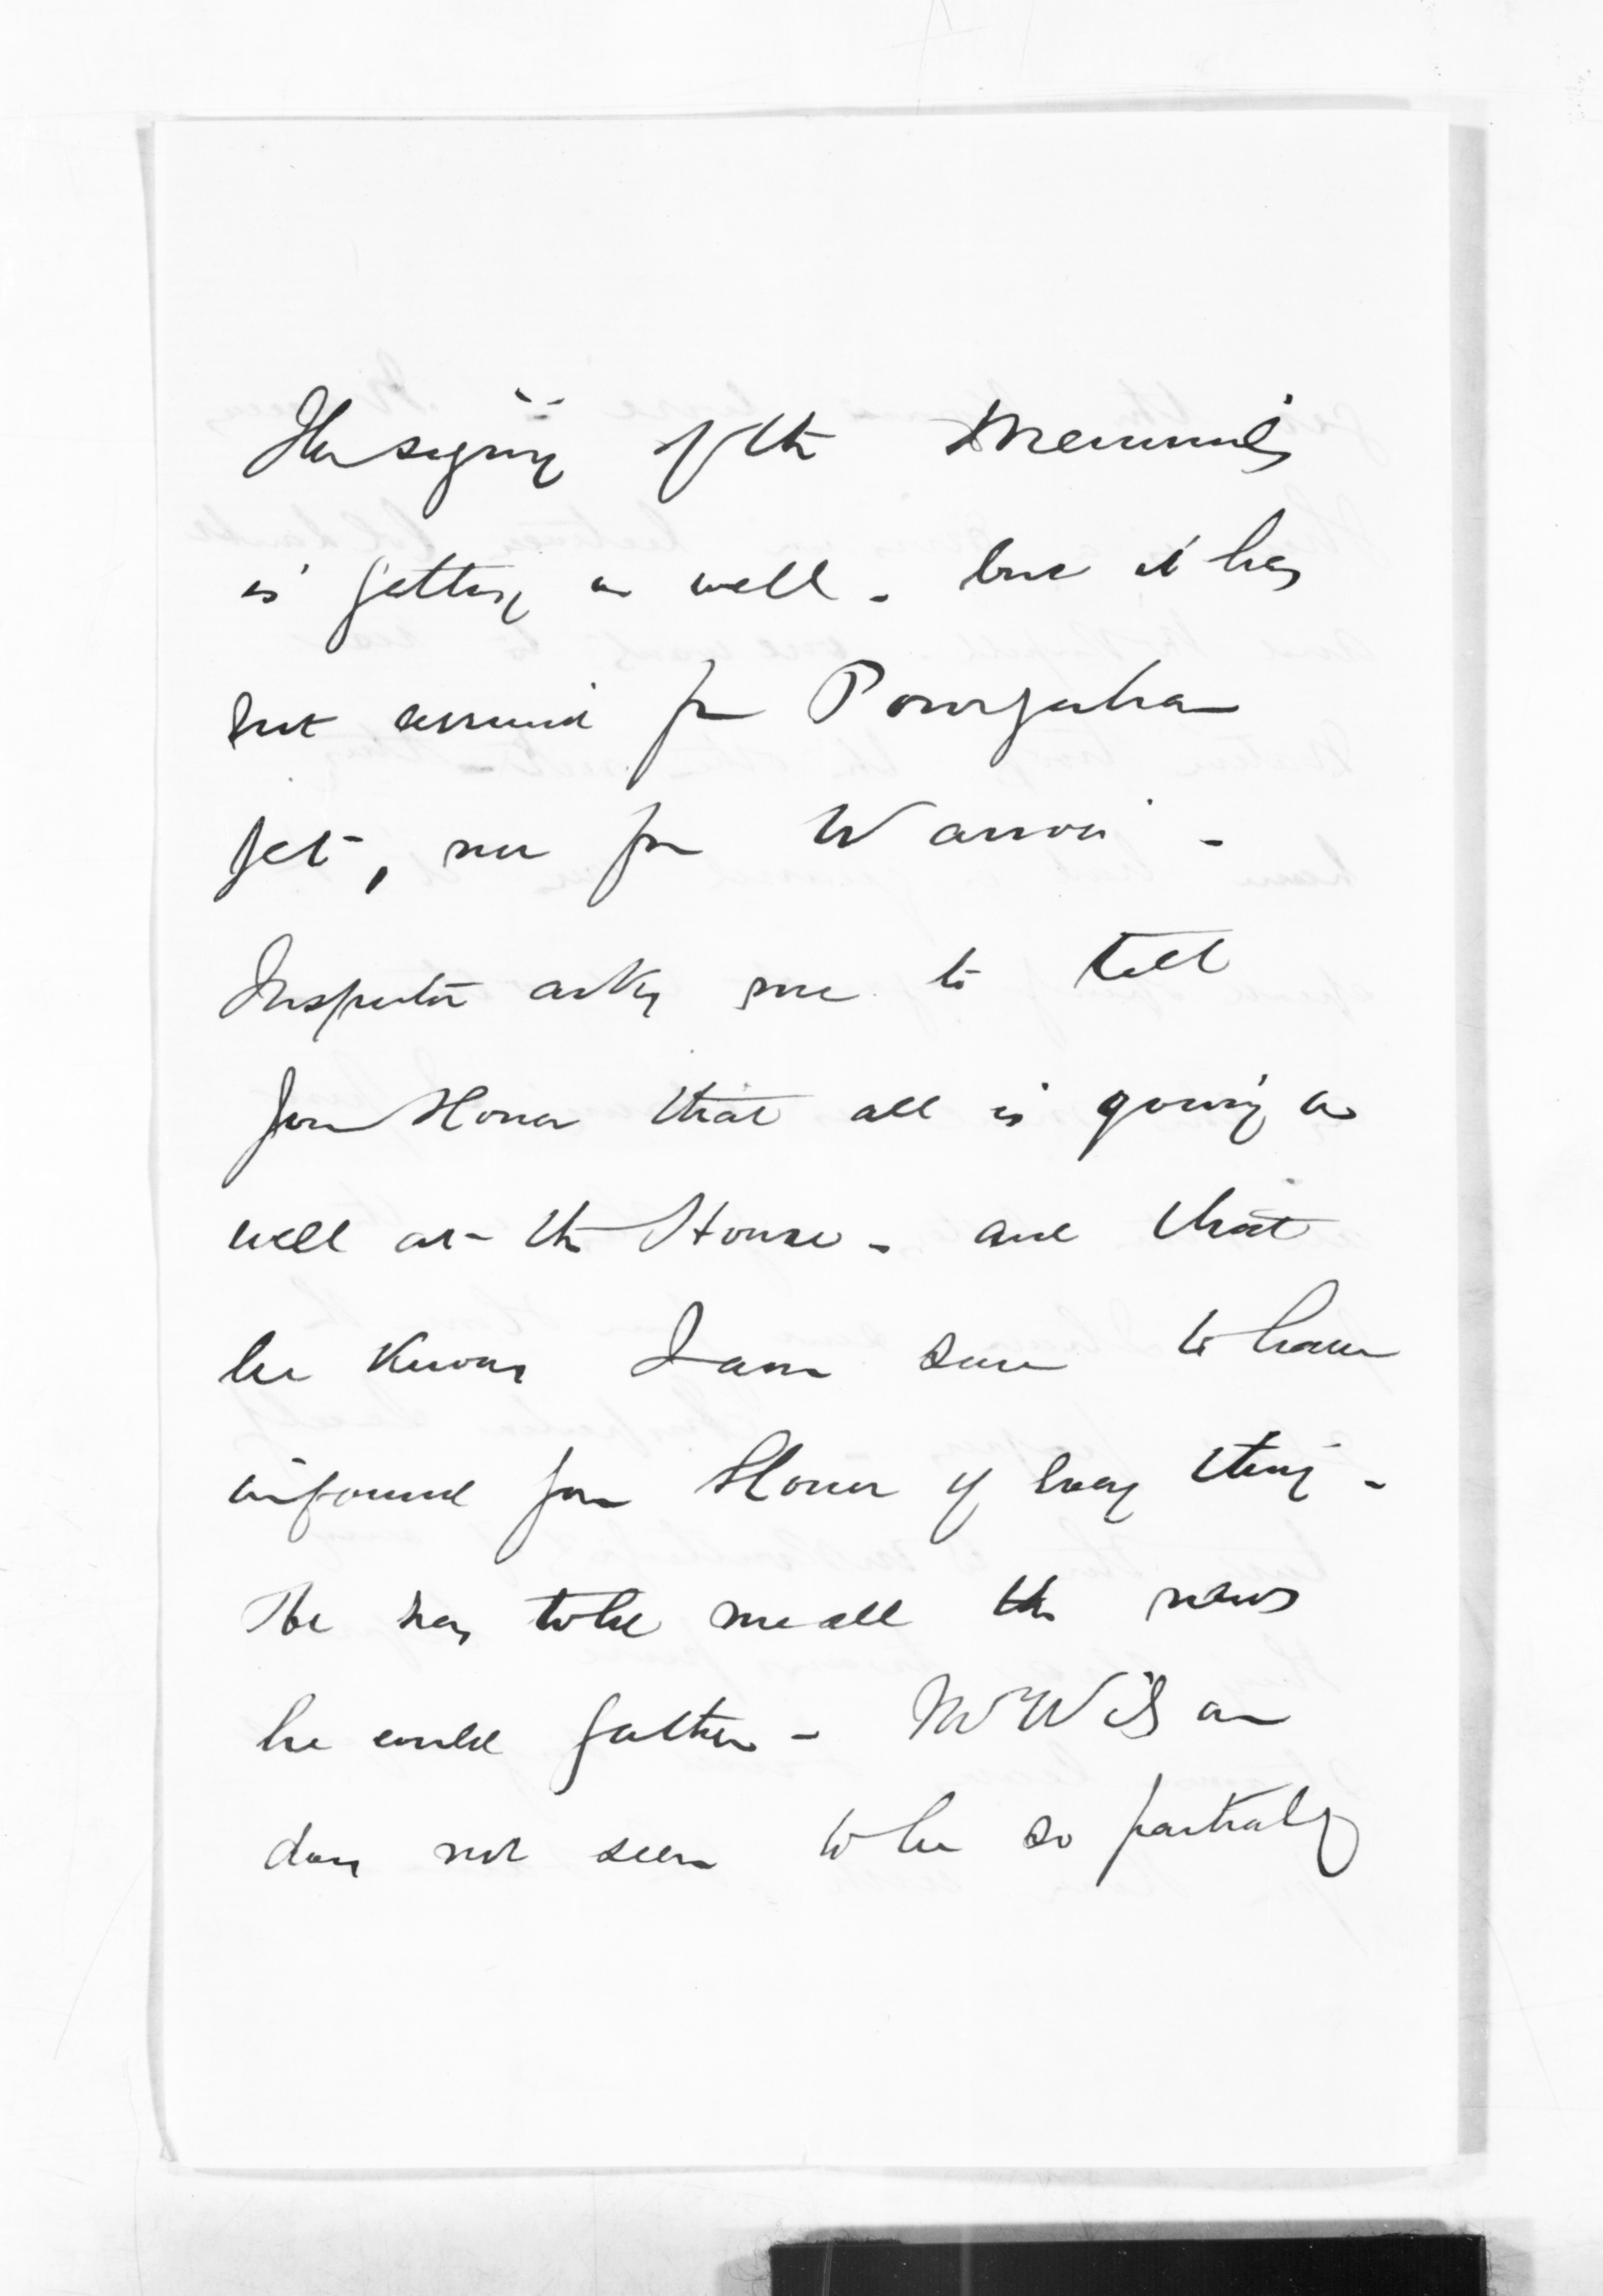 The signing of the Memorials
is getting on well - but it has
not arrived from Powngahau
yet, nor from Wairoa -
Inspector asks me to tell
your Honor that all is going on
well at the House - and that
he knows I am sure to have
informed your Honor of every thing -
He has told me all the news
he could gather - Mr Wilson
does not seem to be so partial